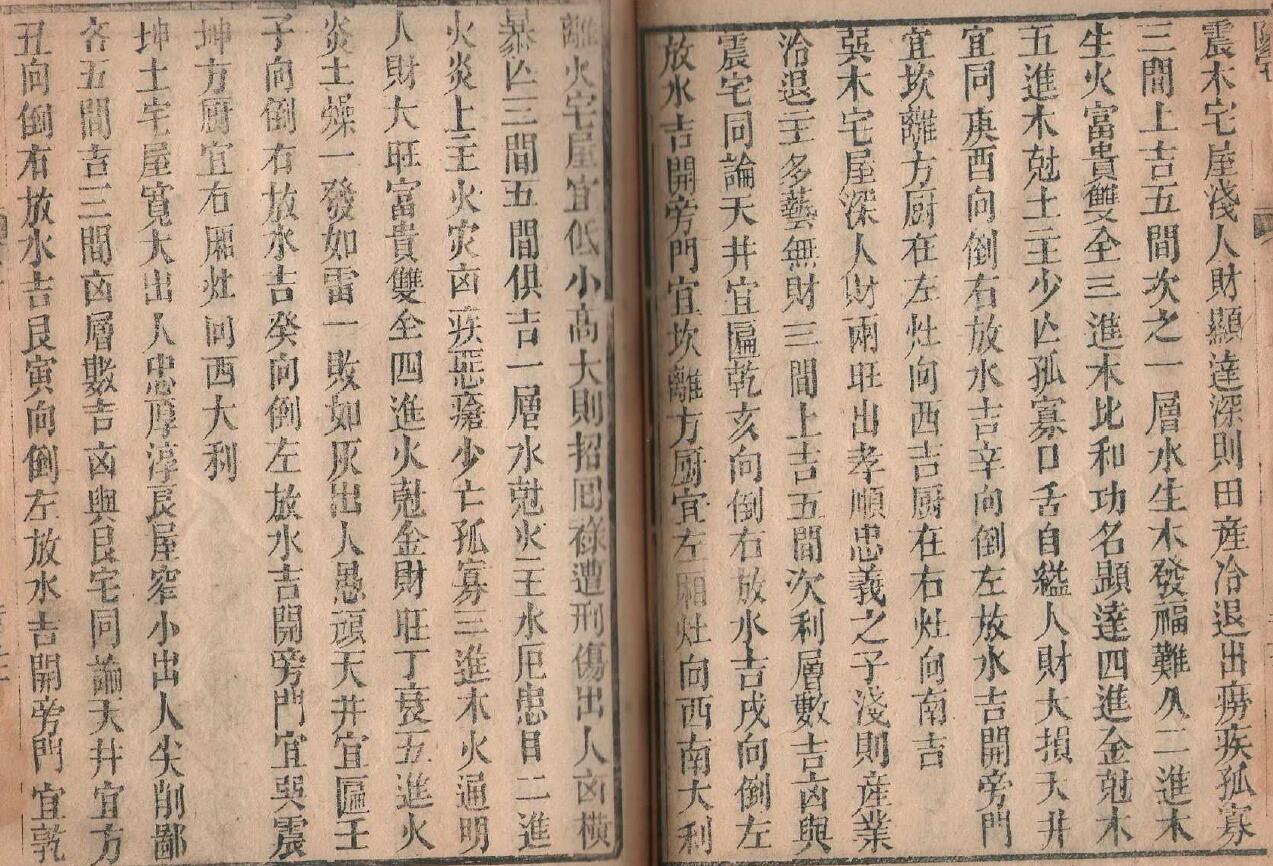 震木宅屋淺人財顯達深則田產冷退出癆疾孤寡
三間上吉五間次之一層水生木發福難久二進木
生火富貴雙全三進木比和功名顯達四進金尅木
五進木尅土主少亾孤寡口舌自縊人財大損天井
宜同庚酉向倒右放水吉辛向倒左放水吉開旁門
宜坎離方厨在左灶向西吉厨在右灶向南吉
巽木宅屋深人財兩旺出孝順忠義之子淺則産業
冷退主多藝無財三間上吉五間次利層數吉凶與
震宅同論天井宜匾乾亥向倒右放水吉戌向倒左
放水吉開旁門宜坎離方厨宜左廂灶向西南大利
離火宅屋宜低小高大則招囘祿遭刑傷出人凶橫
暴亾三間五間俱吉一層水尅火主水厄患目二進
火炎上主火灾凶疾惡瘡少亡孤寡三進木火通明
人財大旺富貴雙全四進火尅金財旺丁衰五進火
炎土燥一發如雷一敗如灰出人愚頑天井宜匾壬
子向倒右放水吉癸向倒左放水吉開旁門宜巽震
坤方厨宜右廂灶向西大利
坤土宅屋寬大出人忠厚淳良屋窄小出人尖削鄙
吝五間吉三間凶層數吉凶與艮宅同論天井宜方
丑向倒右放水吉艮寅向倒左放水吉開旁門宜乾